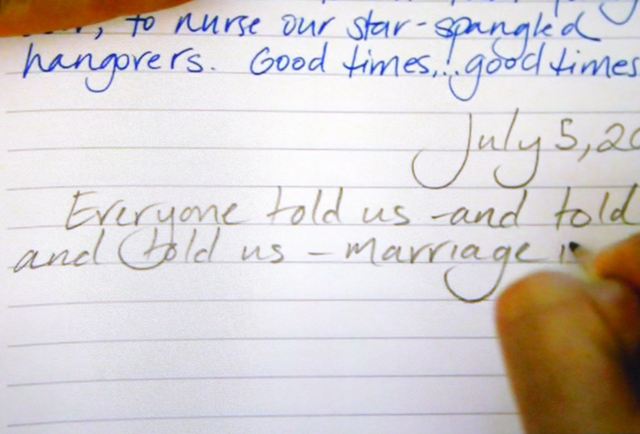 to nurse our star-spangled
hangovers. Good times...good times
July 5, 20
Everyone told us -and told
and told us - marriage